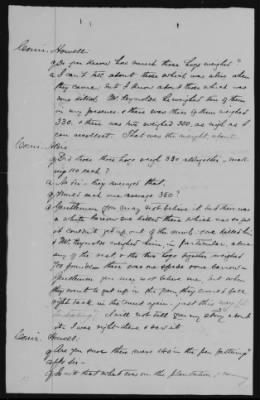 Com'r. Howell:
Q Do you know how much those hogs weighed?
A I can't tell about those which was alive when
they came but I know about those which was
killed. Mr Reynolds he weighed two of them
in my presence & there was three of them weighed
330 & there was two weighed 350, as nigh as I
can recollect. That was the weight about
Com'r.
Q Did those three hogs weigh 330 altogether, mak-
ing 110 each?
A No Sir - they averaged that,
Q Would each one average 350?
A Gentlemen you may not believe it but there was
a white barrow one killed there which was so fat
it couldn't get up out of the mud. one killed him
& Mr Reynolds weighed him, in particular alone
any of the rest & the two hogs together weighed
700 pounds. there was no
gentlemen you may not believe me, but when
they went to get up in the pen, they would fall
right back in the mud again - just this way
I will not tell you any story about
it. I was right there & saw it.
Com'r. Howell:
Q Are you sure there were 140 in the pen fattening?
A Yes Sir -
Q Is not that what was on the plantation,